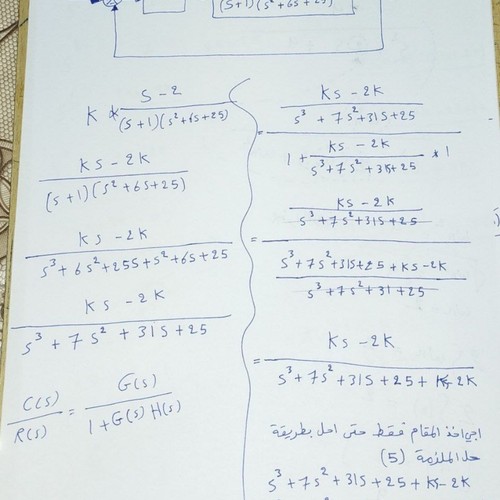 (S+1)(S²+6S+25)
K * S-2 / (S+1)(S²+6S+25)
KS-2K / (S+1)(S²+6S+25)
KS-2K / S³+6S²+25S+S²+6S+25
KS-2K / S³+7S²+31S+25
C(S) / R(S) = G(S) / 1+G(S)H(S)
= KS-2K / S³+7S²+31S+25
1 + KS-2K / S³+7S²+31S+25 * 1
= KS-2K / S³+7S²+31S+25
S³+7S²+31S+25+KS-2K / S³+7S²+31+25
= KS-2K / S³+7S²+31S+25+KS-2K
اجي اخذ المقام فقط حتى احل بطريقة
حل الملزمة (5)
S³+7S²+31S+25+KS-2K